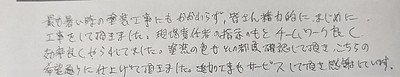 最も暑い時の塗装工事にもかかわらず、皆さん精力的に、まじめに
工事をして頂きました。現場責任者の指示のもとチームワーク良く
効率良くやられてました。塗装の色もその都度確認して頂き、こちらの
希望通りに仕上げて頂きました。追加工事もサービスして頂き感謝しています。